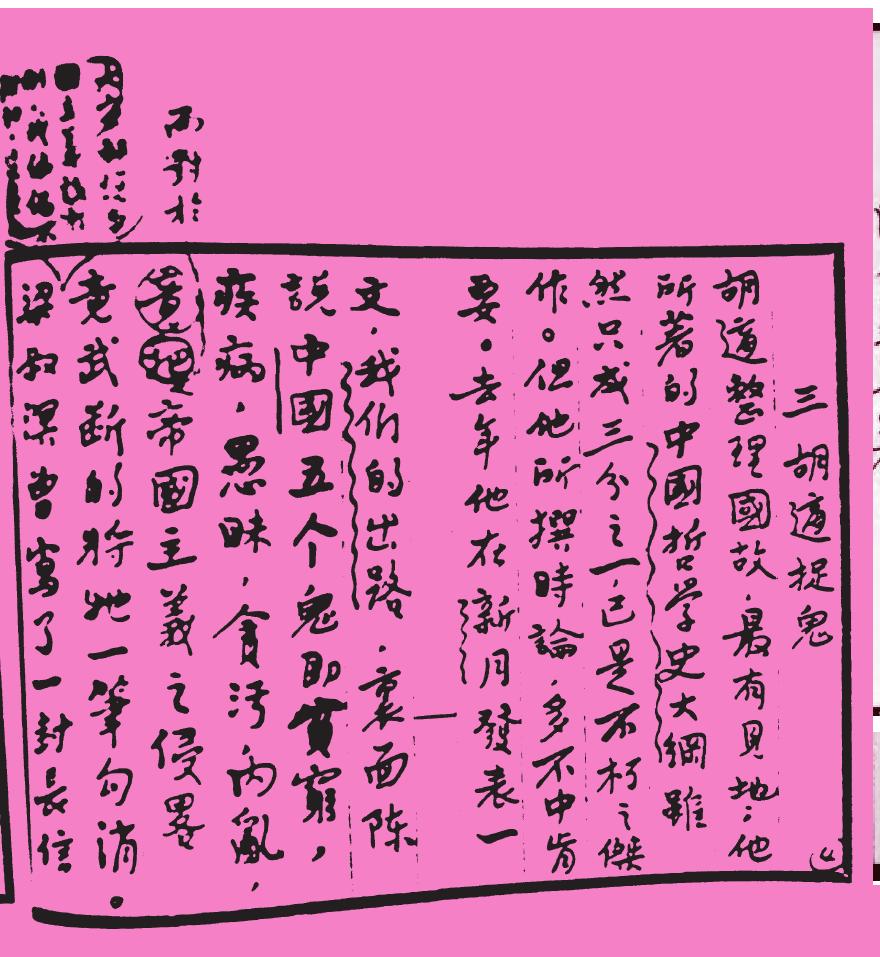 三 胡適捉鬼
胡適整理國故，最有見地；他
所著的中國哲学史大綱雖
然只成三分之一，已是不朽之傑
作。但他所撰時論，多不中肯
要。去年他在新月發表一
文，我们的出路，裏面陈
說中國五个鬼即貧窮，
疾病，愚昧，貪污，内亂，
帝國主義之侵畧
竟武断的将她一筆勾消。
梁漱溟曽寫了一封長信
而對於